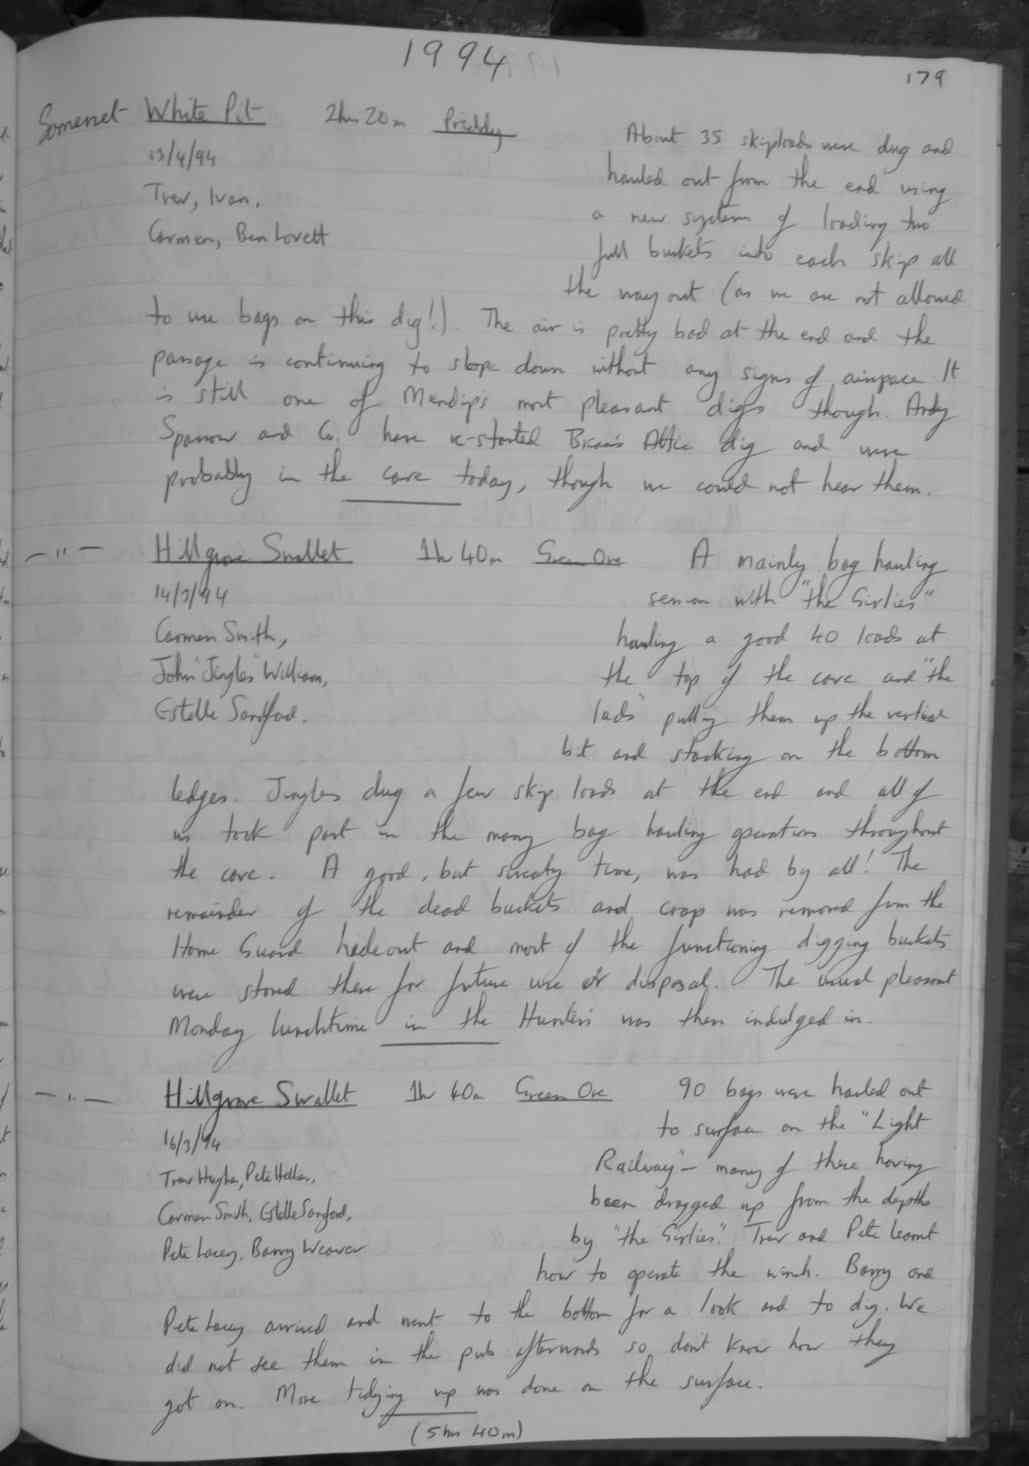 1994
179
Somerset White Pit 2hrs 20m Priddy About 35 skiploads were dug and
13/4/94 hauled out from the end using
Trev, Ivan, a new system of loading two
Carmen, Ben Lovett full buckets into each skip all
the way out (as we are not allowed
to use bags on this dig!). The air is pretty bad at the end and the
passage is continuing to slope down without any signs of airspace. It
is still one of Mendip's most pleasant digs though. Andy
Sparrow and Co. have re-started Brian's Attic dig and were
probably in the cave today, though we could not hear them.
—"— Hillgrove Swallet 1hr 40m Green Ore A mainly bag hauling
14/3/94 session with "the Girlies"
Carmen Smith, hauling a good 40 loads at
John "Jingles" William, the top of the cave and "the
Estelle Sandford. lads" pulling them up the vertical
bit and stacking on the bottom
ledges. Jingles dug a few skip loads at the end and all of
us took part in the many bag hauling operations throughout
the cave. A good, but sweaty time, was had by all! The
remainder of the dead buckets and crap was removed from the
Home Guard hideout and most of the functioning digging buckets
were stored there for future use or disposal. The usual pleasant
Monday lunchtime in the Hunters was then indulged in.
—"— Hillgrove Swallet 1hr 40m Green Ore 90 bags were hauled out
16/3/94 to surface on the "Light
Trev Hughes, Pete Hellier, Railway" – many of these having
Carmen Smith, Estelle Sandford, been dragged up from the depths
Pete Lacey, Barry Weaver by "the Girlies". Trev and Pete learnt
how to operate the winch. Barry and
Pete Lacey arrived and went to the bottom for a look and to dig. We
did not see them in the pub afterwards so don't know how they
got on. More tidying up was done on the surface.
(5hrs 40m)